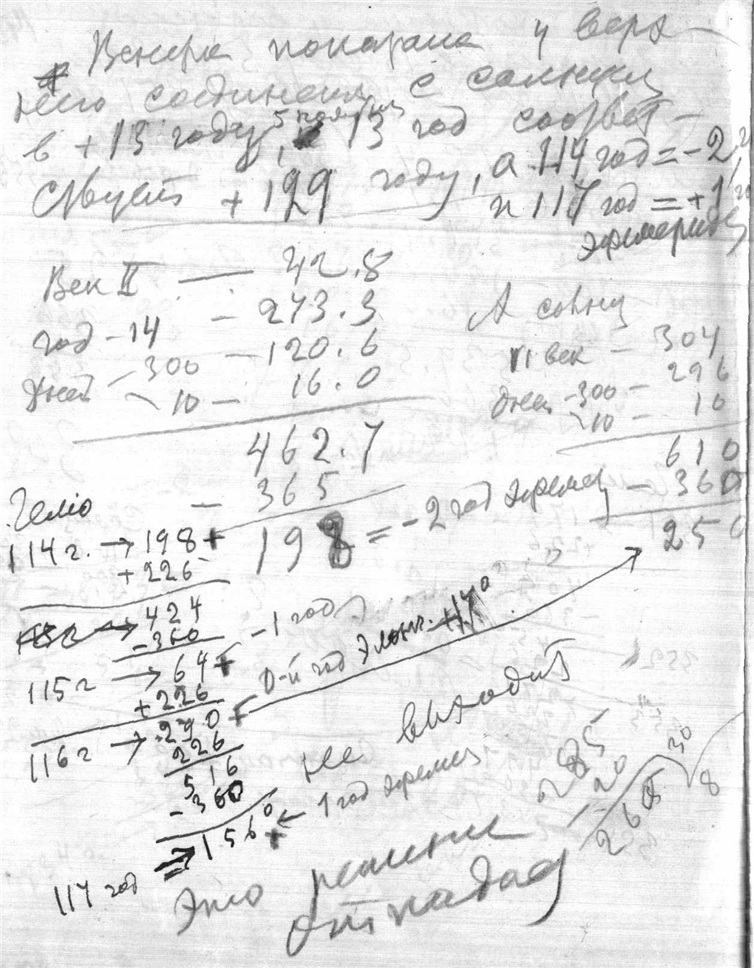 Венера показана у верх-
него соединения с солнцем
в +13 году, 13 год соответ-
ствует +129 году, а 114 год = -2
и 117 год = +1
эфемерид
Век II — 42.8
год -14 — 273.3
дней -300 — 120.6
10 — 16.0
462.7
- 365
198 = -2 год эфемер
А солнц
век — 304
дней -300 — 296
10 — 10
610
- 360
250
Гелио
114 г. → 198 +
+ 226
→ 424
- 360
115 г → 64 + -1 год
+ 226 0-й год элонг.
116 г → 290 +
226
516
- 360
117 год ⇒ 156° + ← 1 год эфемер
не выходит
285
20
265
30
8
Это решение
отпадает